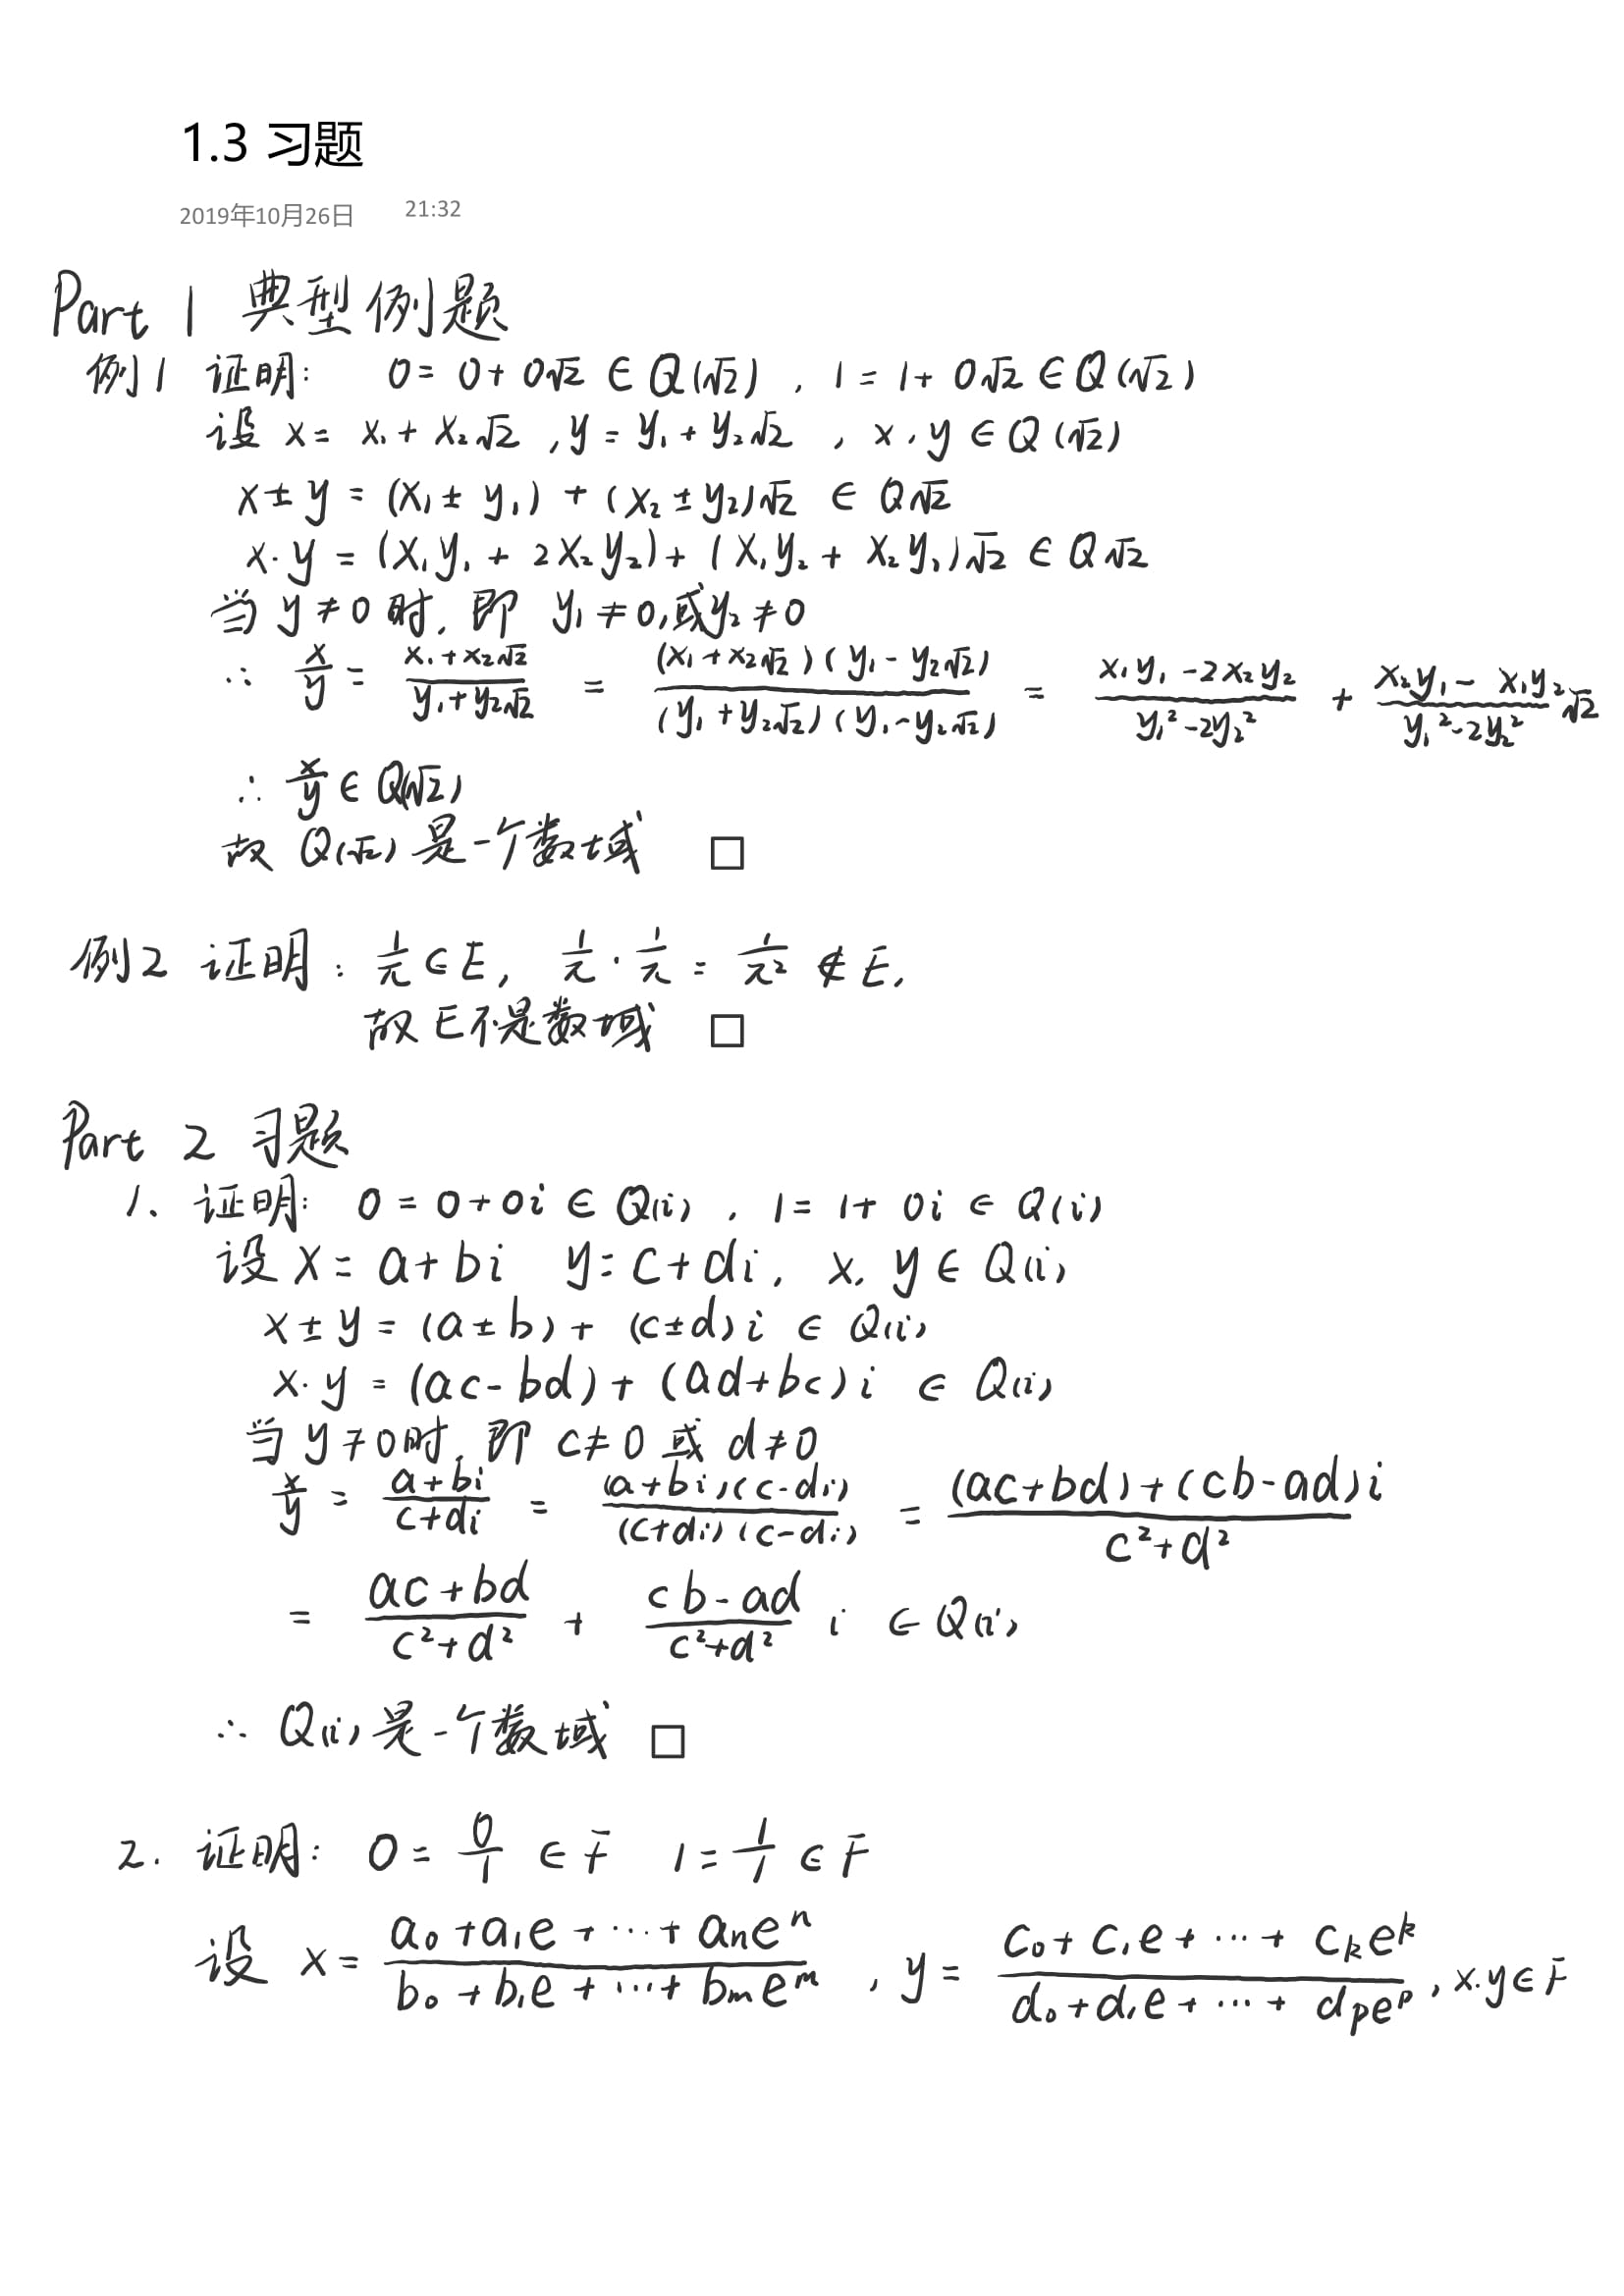 1.3 习题
2019年10月26日 21:32
Part 1 典型例题
例1 证明: 0 = 0 + 0√2 ∈ Q(√2), 1 = 1 + 0√2 ∈ Q(√2)
设 x = x₁ + x₂√2, y = y₁ + y₂√2, x, y ∈ Q(√2)
x ± y = (x₁ ± y₁) + (x₂ ± y₂)√2 ∈ Q√2
x·y = (x₁y₁ + 2x₂y₂) + (x₁y₂ + x₂y₁)√2 ∈ Q√2
当 y ≠ 0 时, 即 y₁ ≠ 0, 或 y₂ ≠ 0
∴ x/y = (x₁+x₂√2)/(y₁+y₂√2) = (x₁+x₂√2)(y₁-y₂√2)/(y₁+y₂√2)(y₁-y₂√2) = (x₁y₁-2x₂y₂)/(y₁²-2y₂²) + (x₂y₁-x₁y₂)/(y₁²-2y₂²) √2
∴ x/y ∈ Q(√2)
故 Q(√2) 是一个数域 □
例2 证明: 1/π ∈ E, 1/π · 1/π = 1/π² ∉ E,
故 E 不是数域 □
Part 2 习题
1. 证明: 0 = 0 + 0i ∈ Q(i), 1 = 1 + 0i ∈ Q(i)
设 x = a + bi y = c + di, x, y ∈ Q(i)
x ± y = (a ± b) + (c ± d)i ∈ Q(i)
x·y = (ac - bd) + (ad + bc)i ∈ Q(i)
当 y ≠ 0 时, 即 c ≠ 0 或 d ≠ 0
x/y = (a+bi)/(c+di) = (a+bi)(c-di)/(c+di)(c-di) = ((ac+bd)+(cb-ad)i)/(c²+d²)
= (ac+bd)/(c²+d²) + (cb-ad)/(c²+d²) i ∈ Q(i)
∴ Q(i) 是一个数域 □
2. 证明: 0 = 0/1 ∈ F 1 = 1/1 ∈ F
设 x = (a₀+a₁e+⋯+aₙeⁿ)/(b₀+b₁e+⋯+bₘeᵐ), y = (c₀+c₁e+⋯+cₖeᵏ)/(d₀+d₁e+⋯+dₚeᵖ), x·y ∈ F